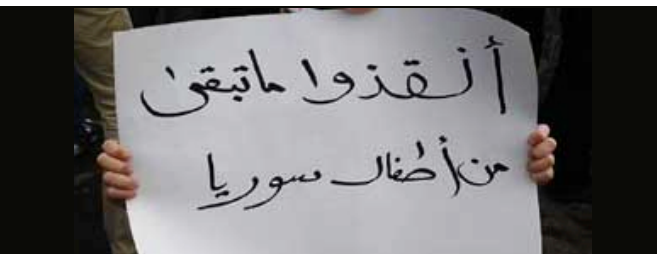 أنقذوا ماتبقى
من أطفال سوريا